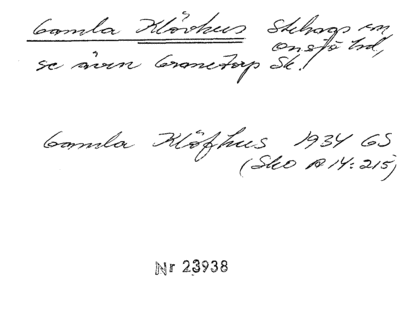 Gamla Klövhus Stehags sn
Onsjö hd,
se även Granetorp Sk.!
Gamla Klöfhus 1934 GS
(SkO A 14:215)
Nr 23938